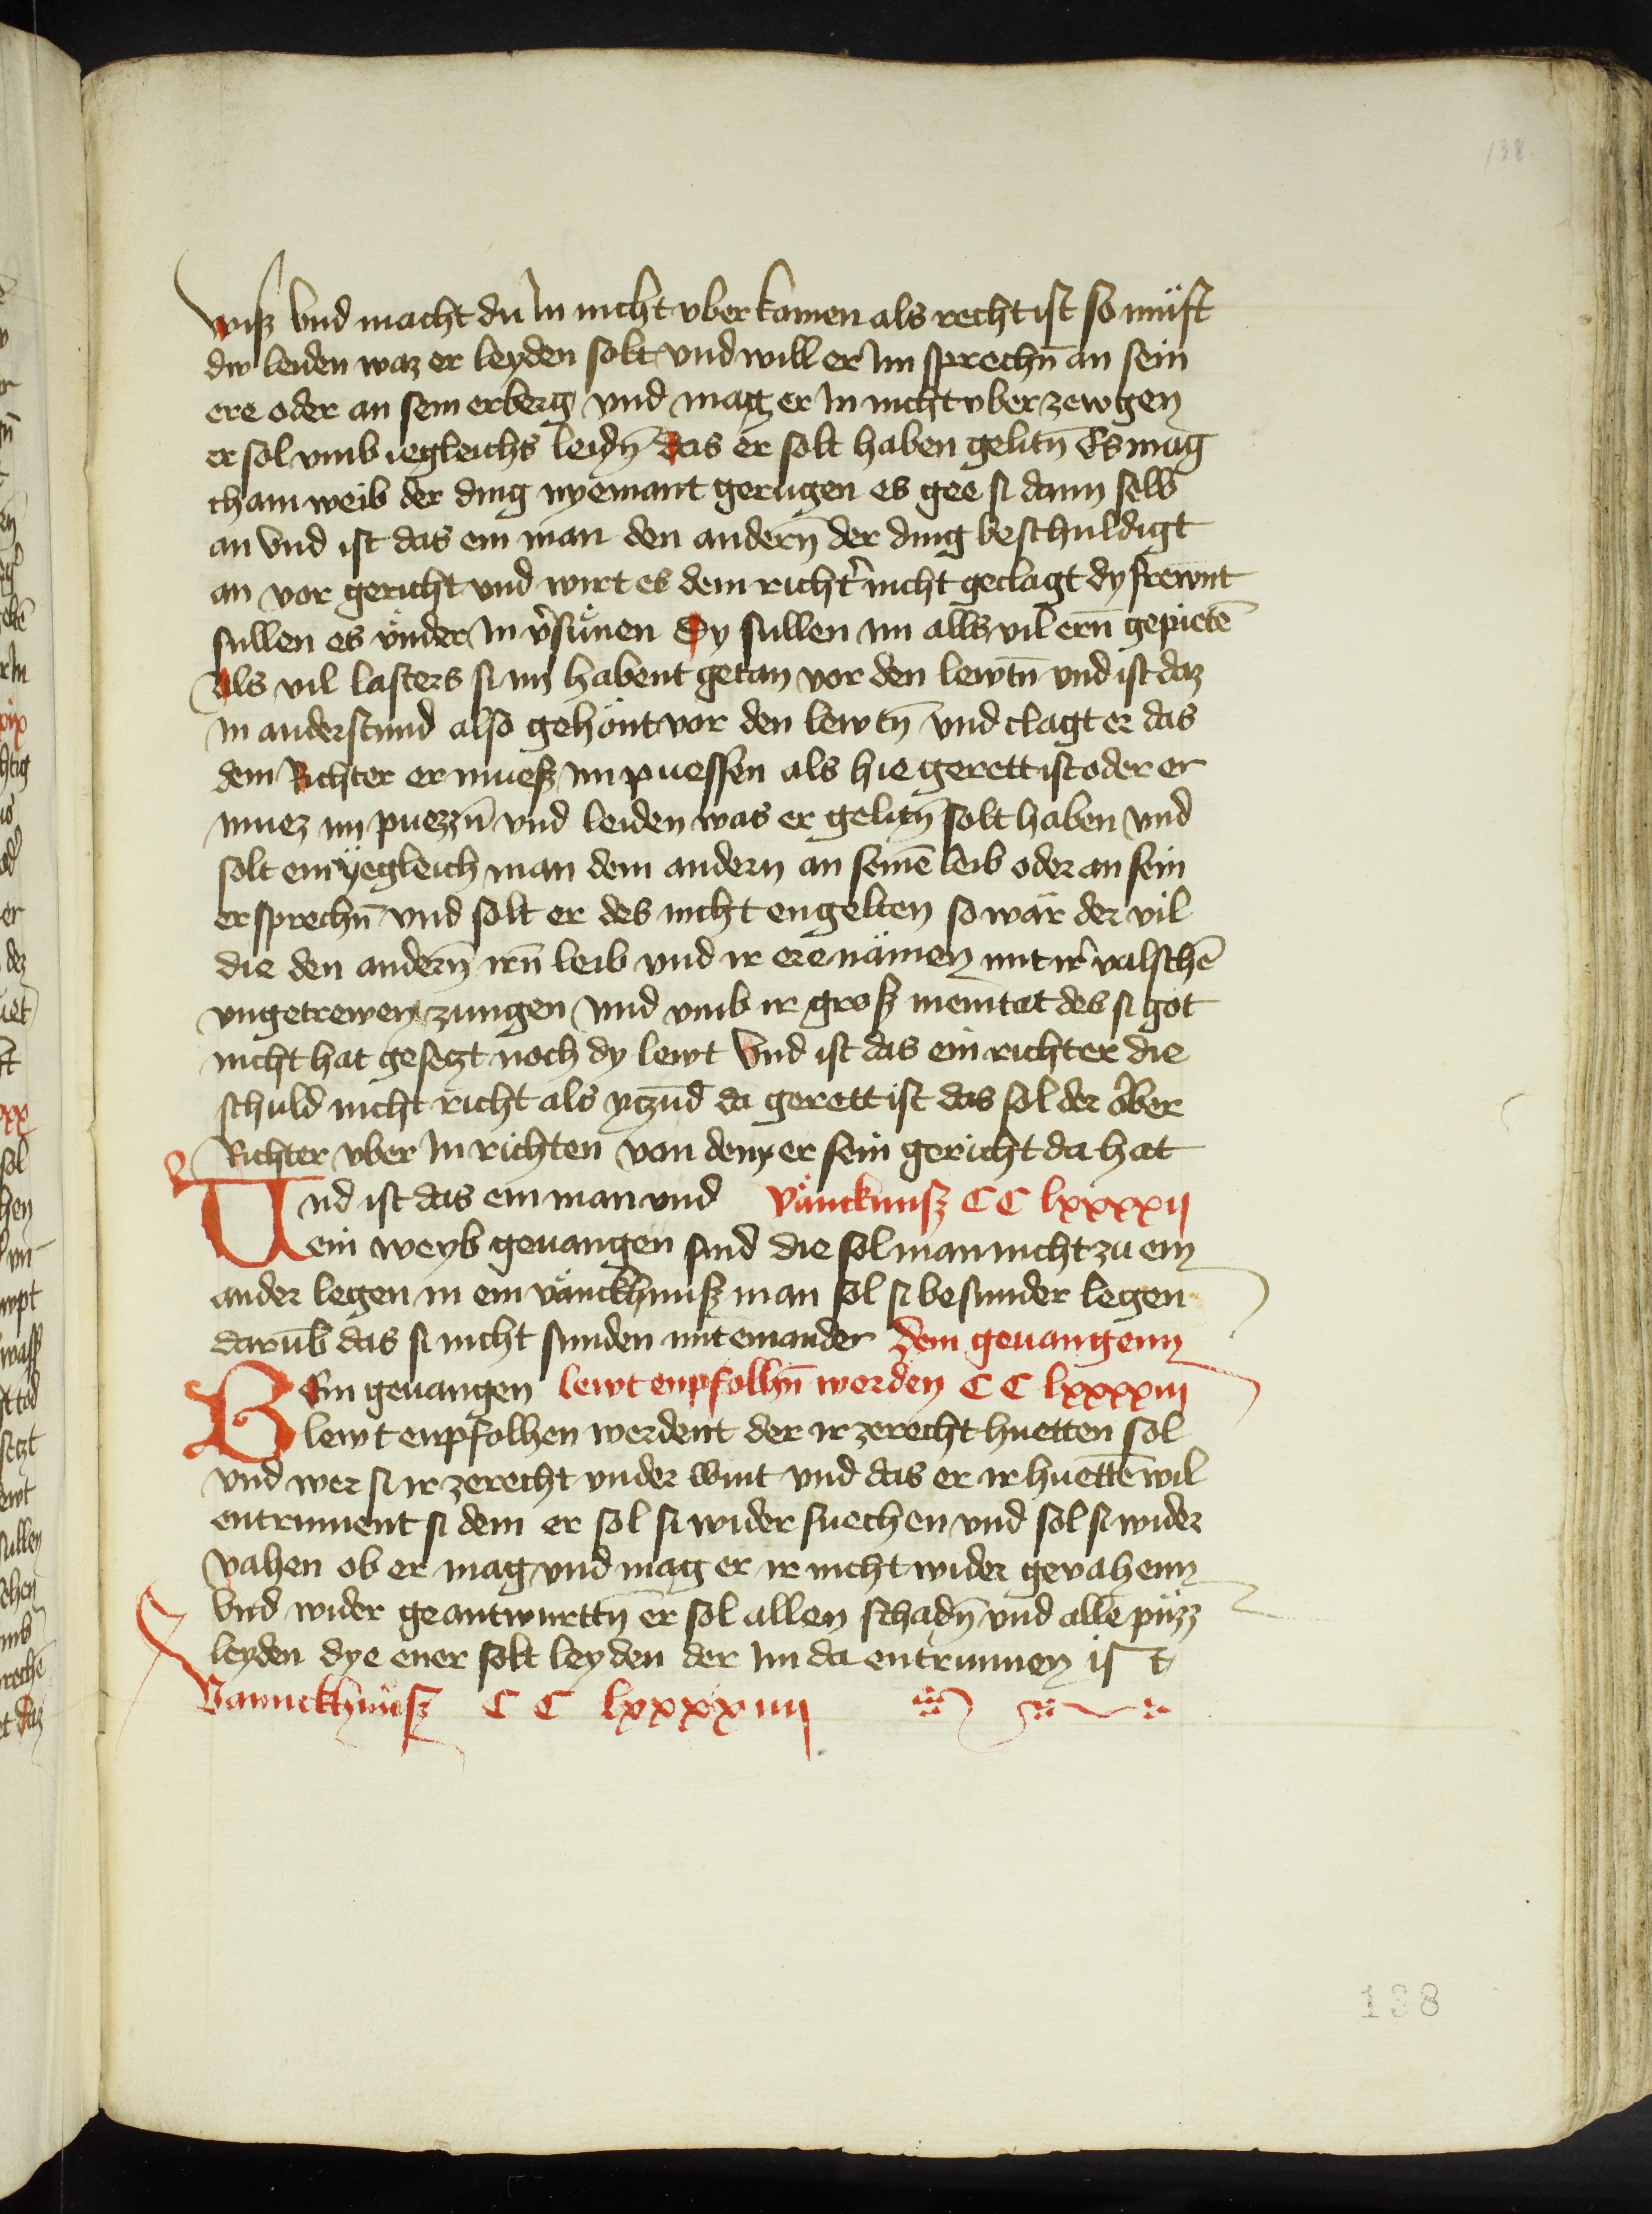 138.
wiss Vnd macht du In nicht vber komen als recht ist so müst
dw leiden waz er leyden solt vnd will er Im sprechn̄ an sein
ere oder an sein erberg vnd mag er In nicht vber zewgen
er sol vmb iegleichs leidn̄ das er solt haben gelitn̄ Es mag
chain weib der ding nyemant gerügen es gee si dann selb
an Vnd ist das ein man den andern̄ der ding beschuldigt
an vor gericht vnd wirt es dem richt̄ nicht geclagt dy frewnt
sullen es vnder In v̄süenen Dy sullen im alls vil ern̄ gepietē
Als vil lasters si im habent getan vor den lewtn̄ vnd ist daz
In anderstund also gehönt vor den lewtn̄ vnd clagt er das
dem Richter er muess im puessen als hie gerett ist oder er
muez im puezzn̄ vnd leiden was er gelitn̄ solt haben Vnd
solt ein yegleich man dem andern an seinē leib oder an sein
er sprechn̄ vnd solt er des nicht engelten so wär der vil
die den andern̄ irn̄ leib vnd ir ere nämen mit ir̄ valschē
vngetrewen zungen Vnd vmb ir gross meintat des si got
nicht hat gesetzt noch dy lewt Vnd ist das ein richter die
schuld nicht richt als ytzūd da gerett ist das sol der Ober
Richter vber In richten von dem er sein gericht da hat
Und ist das ein man vnd Vänckhnuss CC lxxxxij
ein weyb geuangen sind die sol man nicht zu ein
ander legen in ein vänckhnuss man sol si besunder legen
darūb das si nicht sunden mit einander Dem geuangenn
Bem geuangen lewt enpfolhn̄ werden CC lxxxxiij
lewt enpfolhen werdent der ir ze recht huetten sol
vnd wer si ir ze recht vnder wint vnd das er ir huettē wil
entrinnent si dem er sol si wider suechen vnd sol si wider
vahen ob er mag vnd mag er ir nicht wider gevahenn
Vnd wider geantwurttn̄ er sol allen schadn̄ vnd alle püzz
leyden dye ener solt leyden der im da entrunnen ist
Vannckhnüss CC lxxxxiiij
138